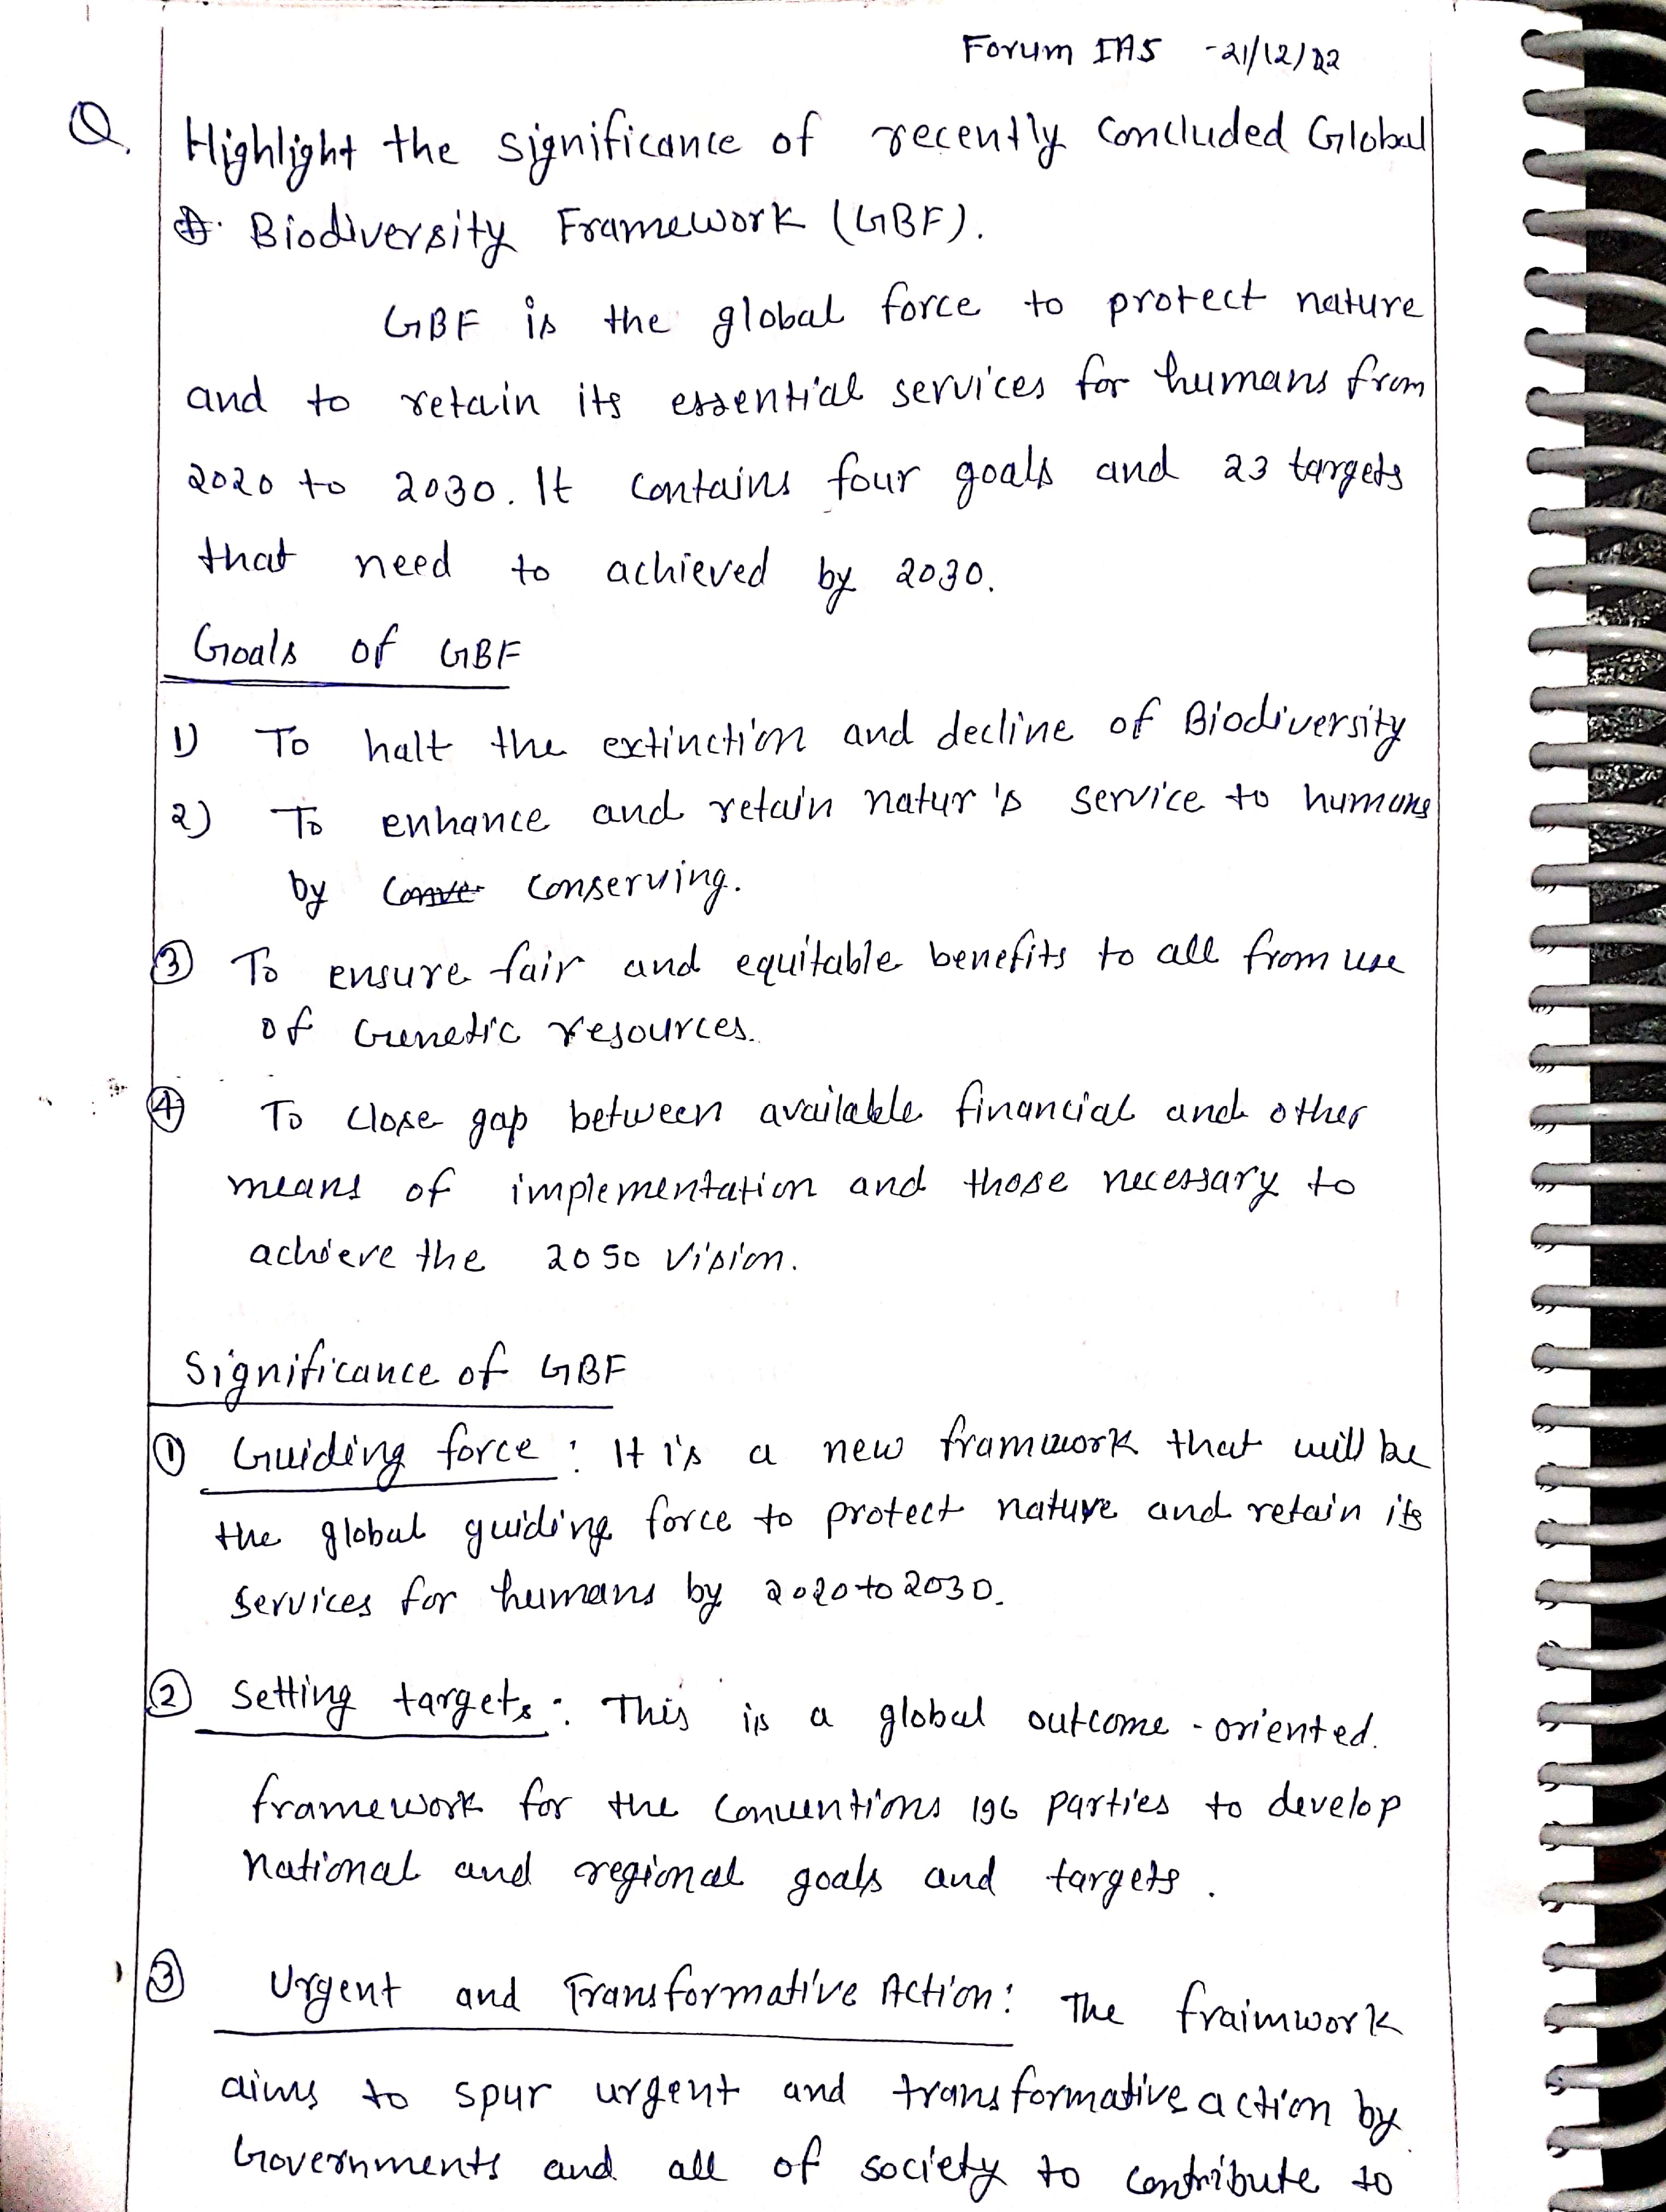 Forum IAS -21/12/22
Q. Highlight the significance of recently concluded Global
Biodiversity Framework (GBF).
GBF is the global force to protect nature
and to retain its essential services for humans from
2020 to 2030. It contains four goals and 23 targets
that need to achieved by 2030.
Goals of GBF
1) To halt the extinction and decline of Biodiversity
2) To enhance and retain natur's service to humans
by conserving.
3 To ensure fair and equitable benefits to all from use
of Genetic resources.
4 To close gap between available financial and other
means of implementation and those necessary to
achieve the 2050 vision.
Significance of GBF
1 Guiding force : It is a new framwork that will be
the global guiding force to protect nature and retain its
services for humans by 2020 to 2030.
2 Setting targets : This is a global outcome-oriented.
framework for the conventions 196 parties to develop
National and regional goals and targets.
3 Urgent and Transformative Action : The fraimwork
aims to spur urgent and transformative action by
Governments and all of society to contribute to